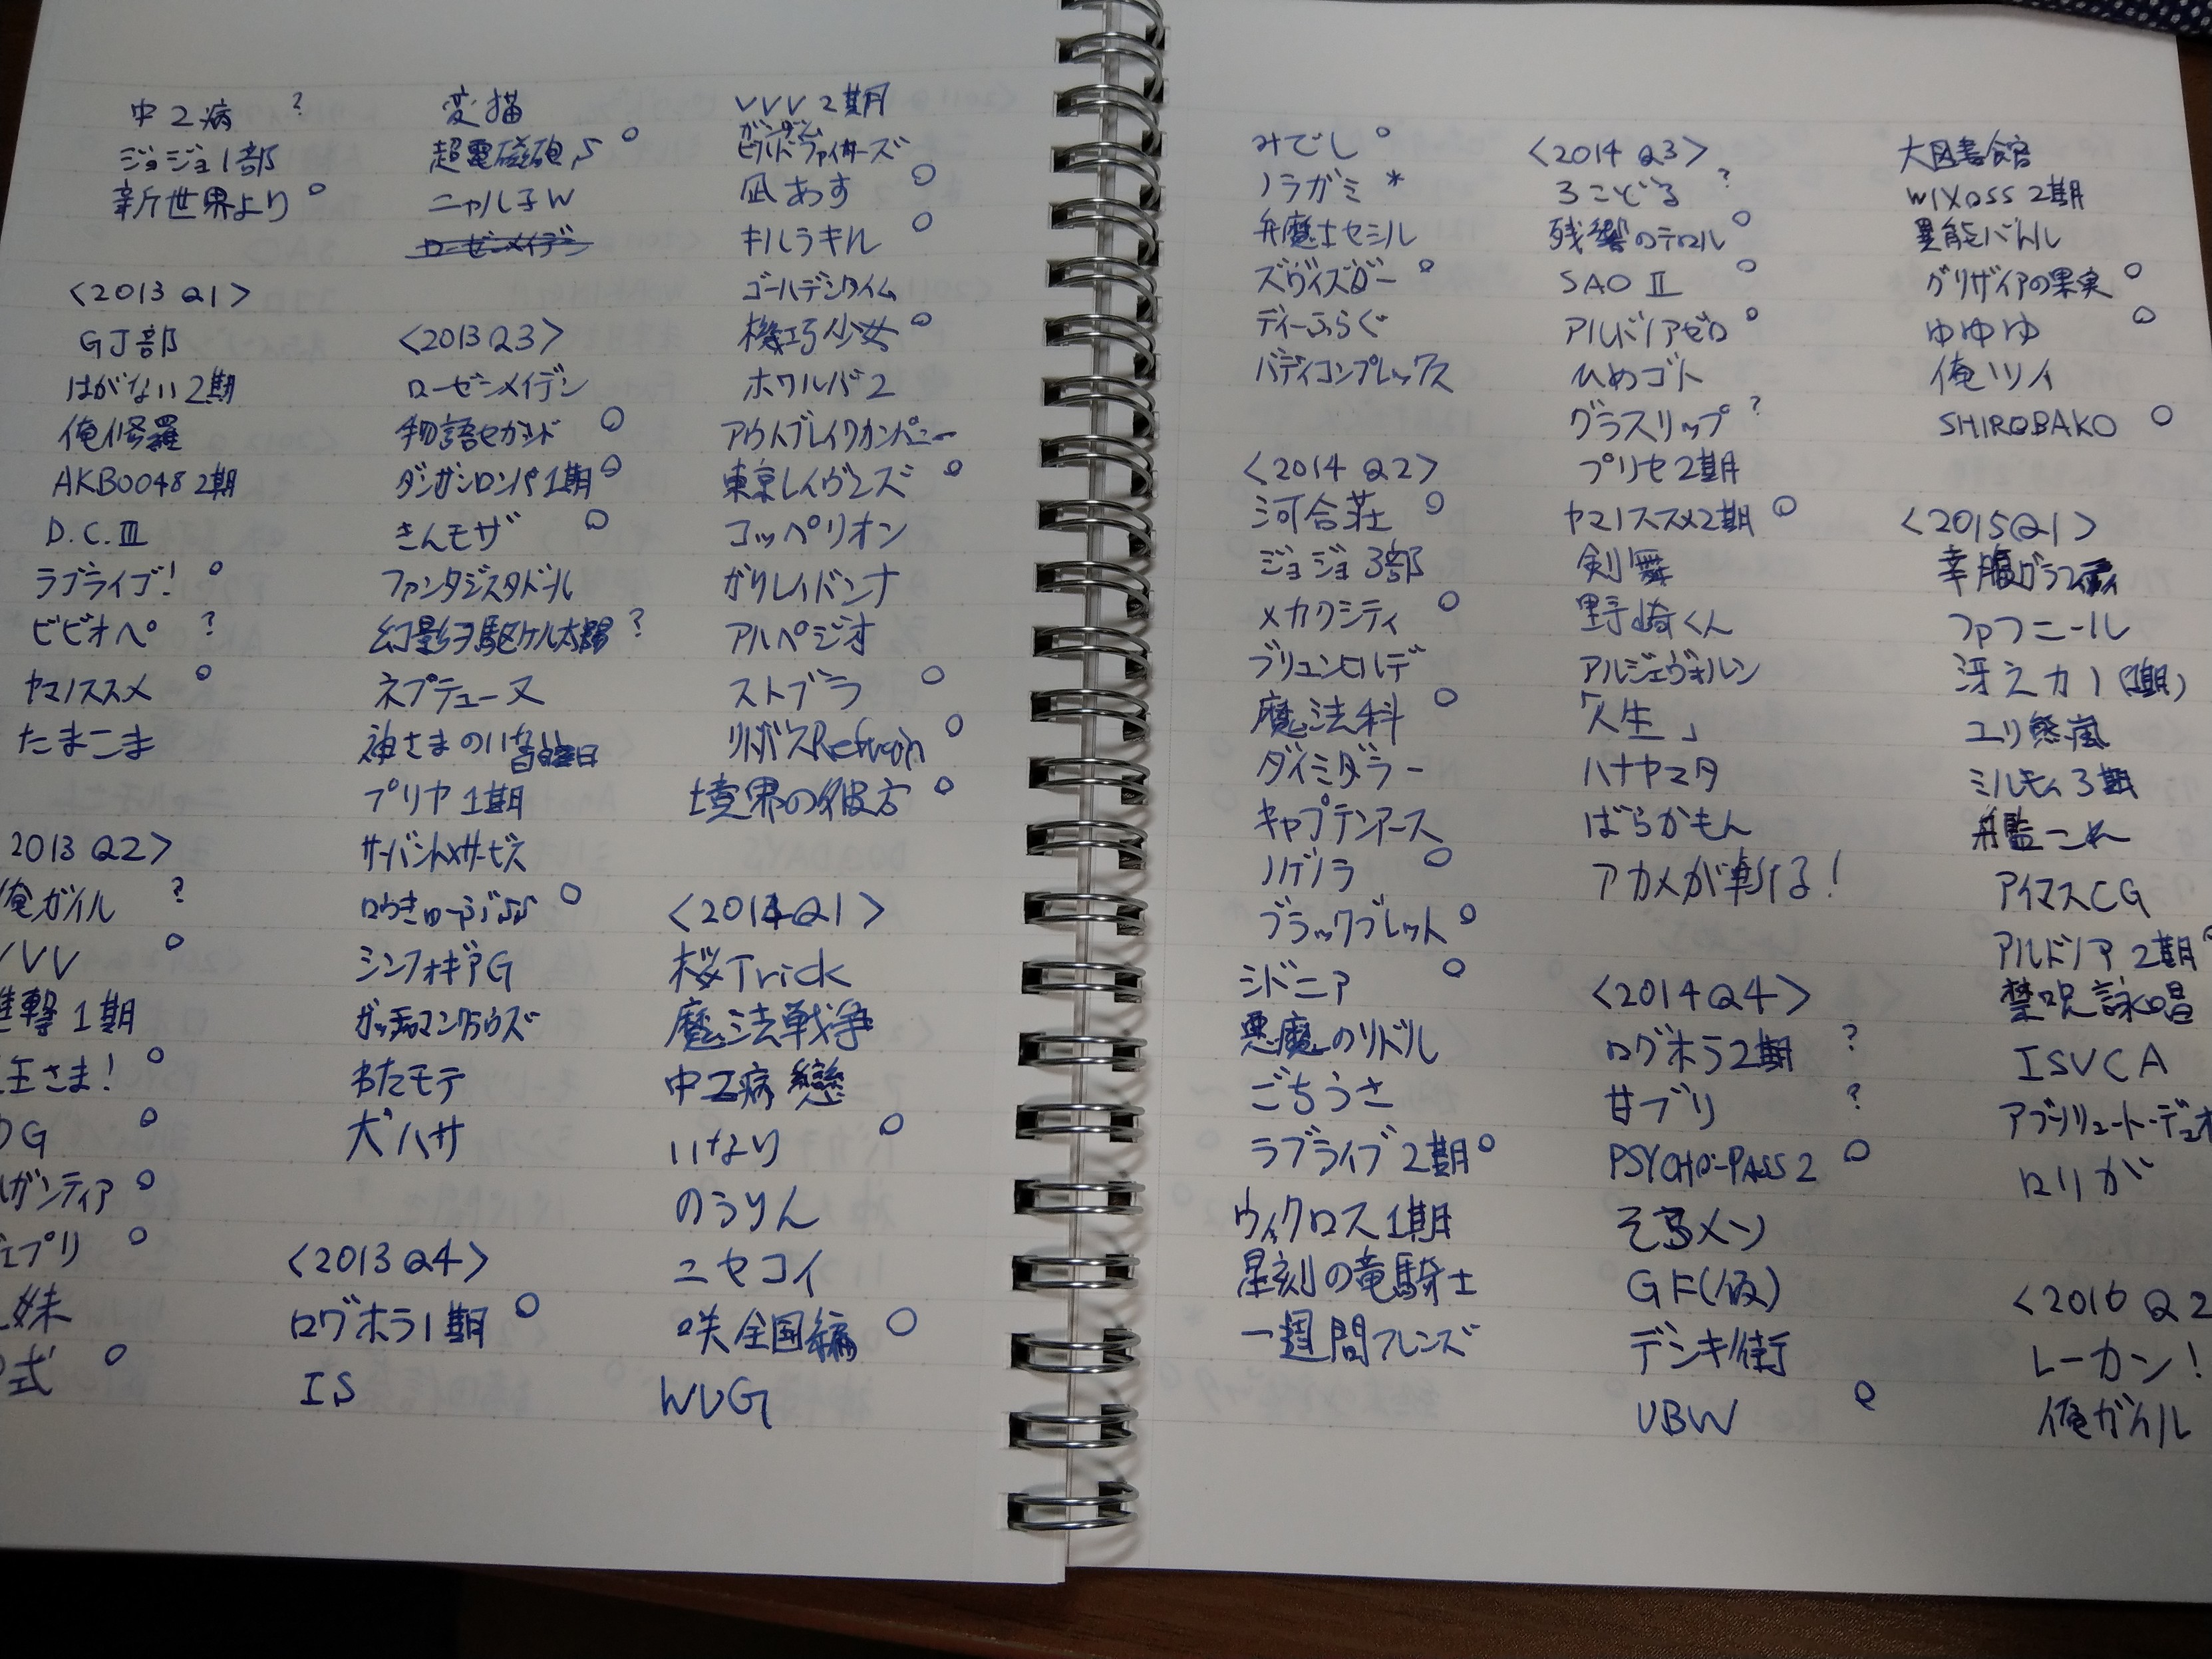 中2病 ?
ジョジョ1部
新世界より ○
<2013 Q1>
GJ部
はがない2期
俺修羅
AKB0048 2期
D.C.Ⅲ
ラブライブ! ○
ビビオペ ?
ヤマノススメ ○
たまこま
2013 Q2>
俺ガイル ?
VVV ○
進撃1期
王さま! ○
G ○
ガンティア ○
プリ ○
妹
式 ○
変猫
超電磁砲S ○
ニャル子W
ローゼンメイデン
<2013 Q3>
ローゼンメイデン
物語セカンド ○
ダンガンロンパ1期 ○
きんモザ ○
ファンタジスタドール
幻影ヲ駆ケル太陽 ?
ネプテューヌ
神さまのいない日曜日
プリヤ1期
サーバント×サービス
ロウきゅーぶSS ○
シンフォギアG
ガッチャマンクラウズ
わたモテ
犬ハサ
<2013 Q4>
ログホラ1期 ○
IS
VVV 2期
ガンダム
ビルドファイターズ
凪あす ○
キルラキル ○
ゴールデンタイム
機巧少女 ○
ホワルバ2
アウトブレイクカンパニー
東京レイヴンズ ○
コッペリオン
ガリレイドンナ
アルペジオ
ストブラ ○
リトバスRefrain ○
境界の彼方 ○
<2014 Q1>
桜Trick
魔法戦争
中二病 戀
いなり ○
のうりん
ニセコイ
咲 全国編 ○
WUG
みでし ○
ノラガミ *
弁魔士セシル
ズヴィズダー ○
ディーふらぐ
バディコンプレックス
<2014 Q2>
河合荘 ○
ジョジョ3部
メカクシティ ○
ブリュンヒルデ
魔法科 ○
ダイミダラー
キャプテンアース
ノゲノラ ○
ブラックブレット ○
シドニア ○
悪魔のリドル
ごちうさ
ラブライブ2期 ○
ウィクロス1期
星刻の竜騎士
一週間フレンズ
<2014 Q3>
ろこどる ?
残響のテロル ○
SAO Ⅱ ○
アルドノアゼロ ○
ひめゴト
グラスリップ ?
プリヤ2期
ヤマノススメ2期 ○
剣舞
野崎くん
アルジェヴォルン
「人生」
ハナヤマタ
ばらかもん
アカメが斬る!
<2014 Q4>
ログホラ2期 ?
甘ブリ ?
PSYCHO-PASS 2 ○
そらメソ
GF(仮)
デンキ街
UBW ○
大図書館
WIXOSS 2期
異能バトル
グリザイアの果実 ○
ゆゆゆ ○
俺ツイ
SHIROBAKO ○
<2015 Q1>
幸腹グラフィティ
ファフニール
冴えカノ(1期)
ユリ熊嵐
ミルキィ3期
艦これ
アイマスCG
アルドノア2期 ○
禁呪詠唱
ISUCA
アブソリュート・デュオ
ロリガ
<2016 Q2
レーカン!
俺ガイル